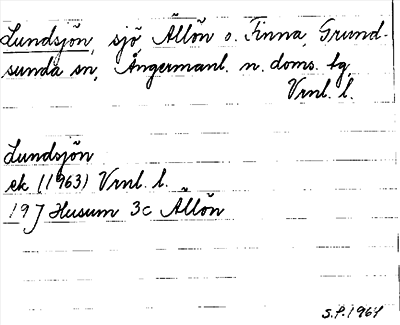 Lundsjön, sjö, Ällön o. Finna, Grund-
sunda sn, Ångermanl. n. doms. tg,
Vrnl. l.
Lundsjön
ek (1963) Vrnl. l.
19 J Husum 3c Ällön
S.P. 1964